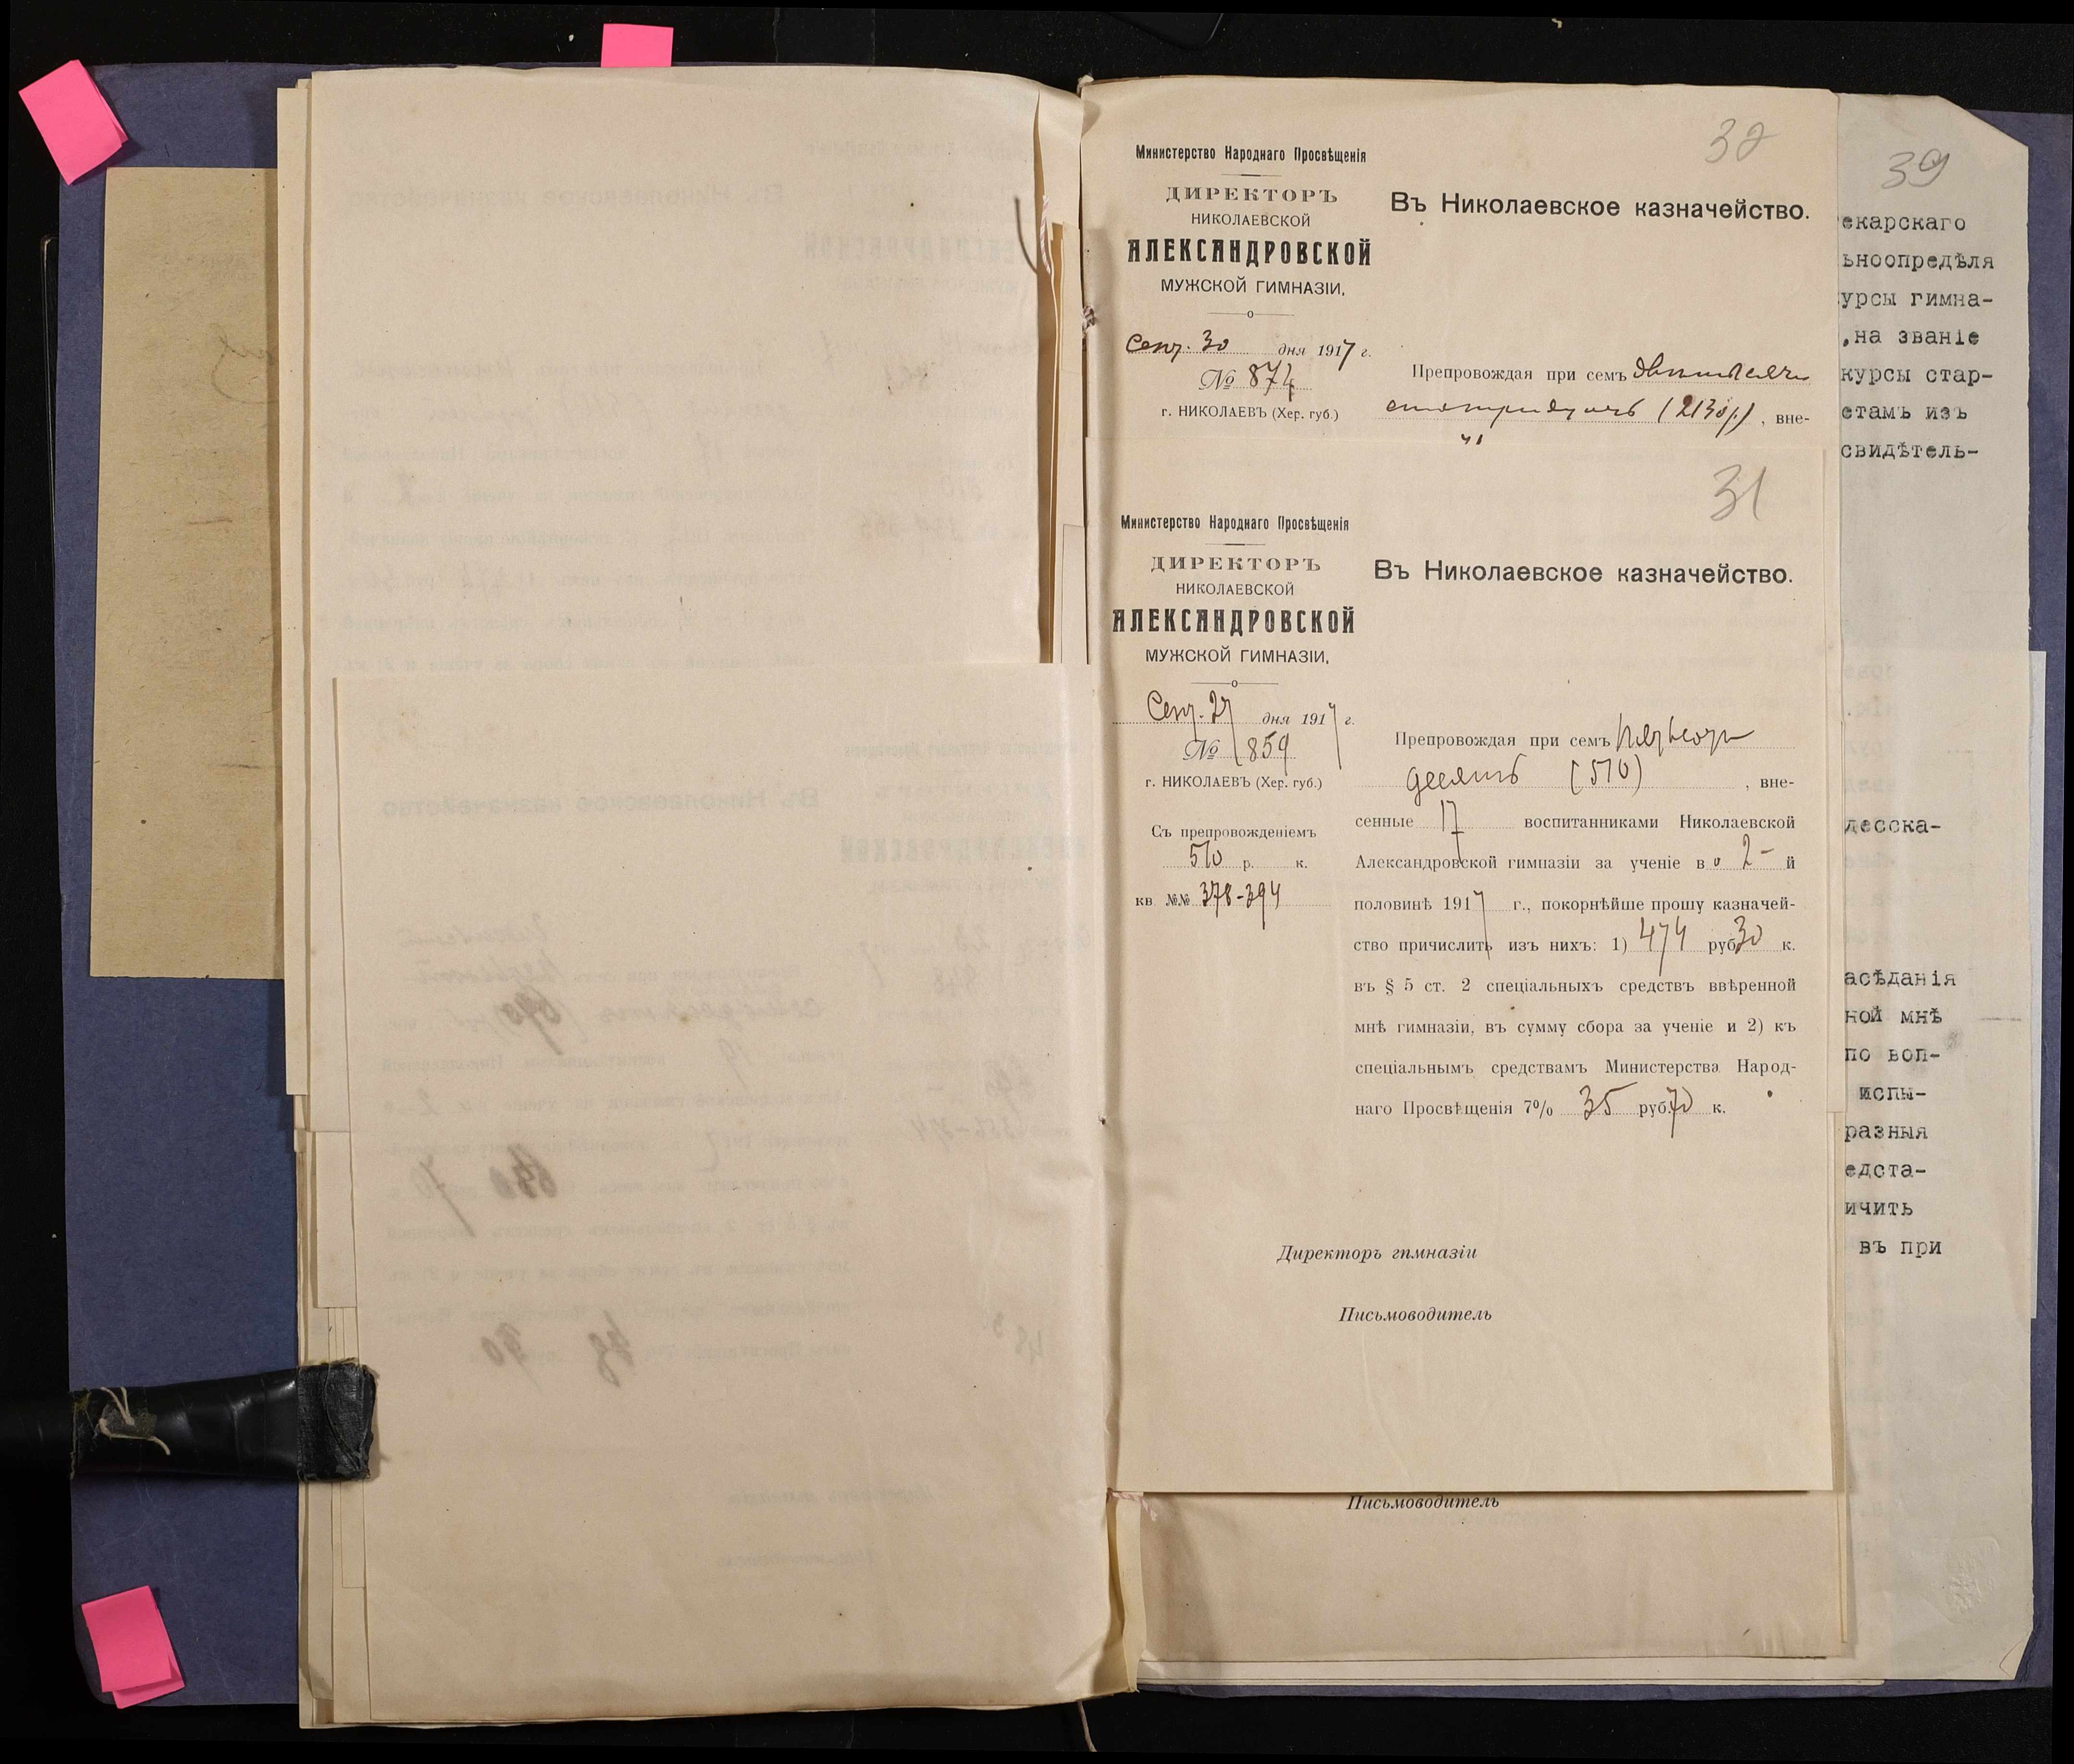 32
Министерство Народнаго Просвѣщенія
ДИРЕКТОРЪ
НИКОЛАЕВСКОЙ
АЛЕКСАНДРОВСКОЙ
МУЖСКОЙ ГИМНАЗІИ,
Въ Николаевское казначейство.
Сент. 30 дня 1917 г.
№ 874
г. НИКОЛАЕВЪ (Хер. губ.)
Препровождая при семъ двѣ тысячи
сто тридцать (2130 р.), вне-
31
Министерство Народнаго Просвѣщенія
ДИРЕКТОРЪ
НИКОЛАЕВСКОЙ
АЛЕКСАНДРОВСКОЙ
МУЖСКОЙ ГИМНАЗІИ,
Въ Николаевское казначейство.
Сент. 27 дня 1917 г.
№ 859
г. НИКОЛАЕВЪ (Хер. губ.)
Съ препровожденіемъ
510 р. к.
кв. №№ 378-394
Препровождая при семъ пятьсотъ
десять (510) , вне-
сенные 17 воспитанниками Николаевской
Александровской гимназіи за ученіе во 2-й
половинѣ 1917 г., покорнѣйше прошу казначей-
ство причислить изъ нихъ: 1) 474 руб. 30 к.
въ § 5 ст. 2 спеціальныхъ средствъ ввѣренной
мнѣ гимназіи, въ сумму сбора за ученіе и 2) къ
спеціальнымъ средствамъ Министерства Народ-
наго Просвѣщенія 7% 35 руб. 70 к.
Директоръ гимназіи
Письмоводитель
Письмоводитель
39
екарскаго
ьноопредѣля
урсы гимна-
,на званіе
курсы стар-
етамъ изъ
свидѣтель-
десска-
асѣданія
ной мнѣ
по воп-
испы-
разныя
едста-
ичить
въ при